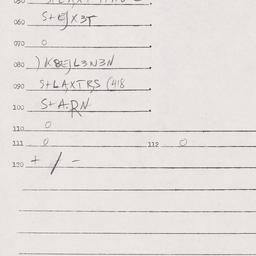 S+EJX3T
070 0
080 )KBEJL3N3N
090 S+LAXTRS (418
100 S+A.RN
110 0
111 0 112 0
120 + / -